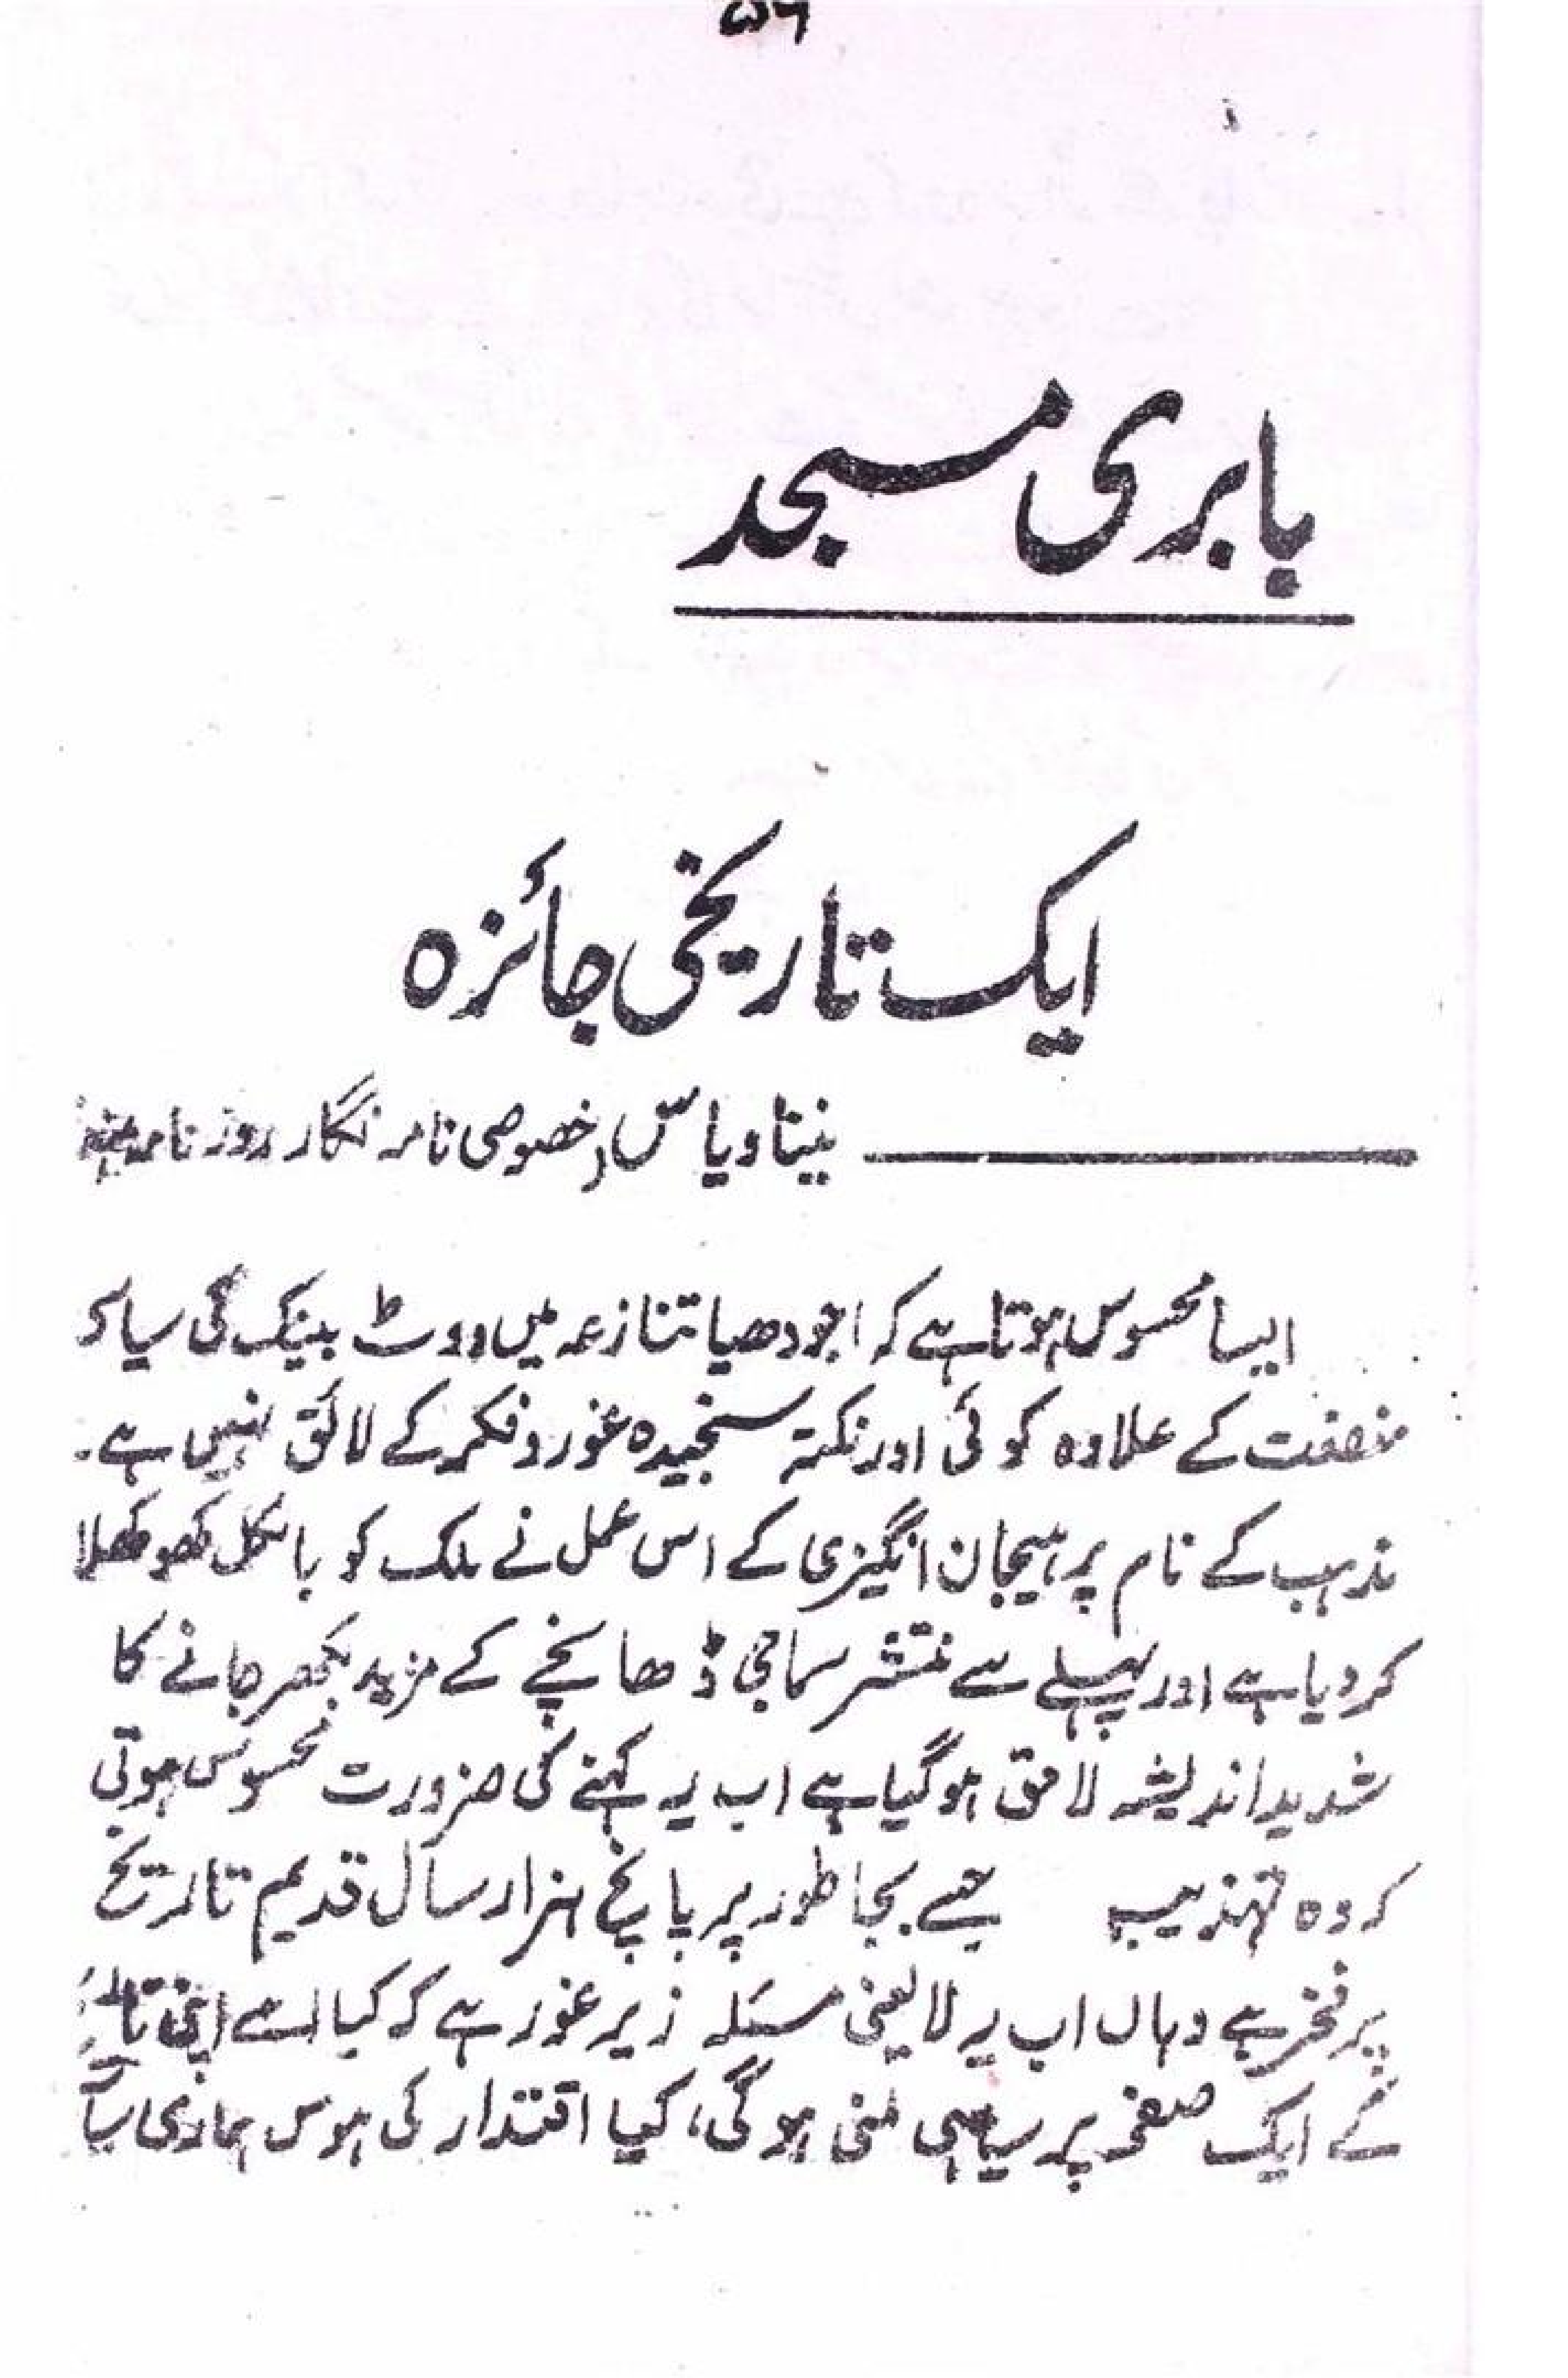 ۵۶
بابری مسجد
ایک تاریخی جائزہ
نینا ویاس (خصوصی نامہ نگار روزنامہ
ایسا محسوس ہوتا ہے کہ اجودھیا تنازعہ میں ووٹ بینک کی
منفعت کے علاوہ کوئی اور نکتہ سنجیدہ غور و فکر کے لائق نہیں ہے۔
مذہب کے نام پر ہیجان انگیزی کے اس عمل نے ملک کو بالکل کھوکھلا
کر دیا ہے اور پہلے سے منتشر سماجی ڈھانچے کے مزید بکھر جانے کا
شدید اندیشہ لاحق ہو گیا ہے اب یہ کہنے کی ضرورت محسوس ہوتی
کہ وہ تہذیب جسے بجا طور پر پانچ ہزار سال قدیم تاریخ
پر فخر ہے وہاں اب یہ لایعنی مسئلہ زیر غور ہے کہ کیا اسے اپنی
کے ایک صفحہ پر سیاہی ملنی ہوگی، کیا اقتدار کی ہوس ہماری